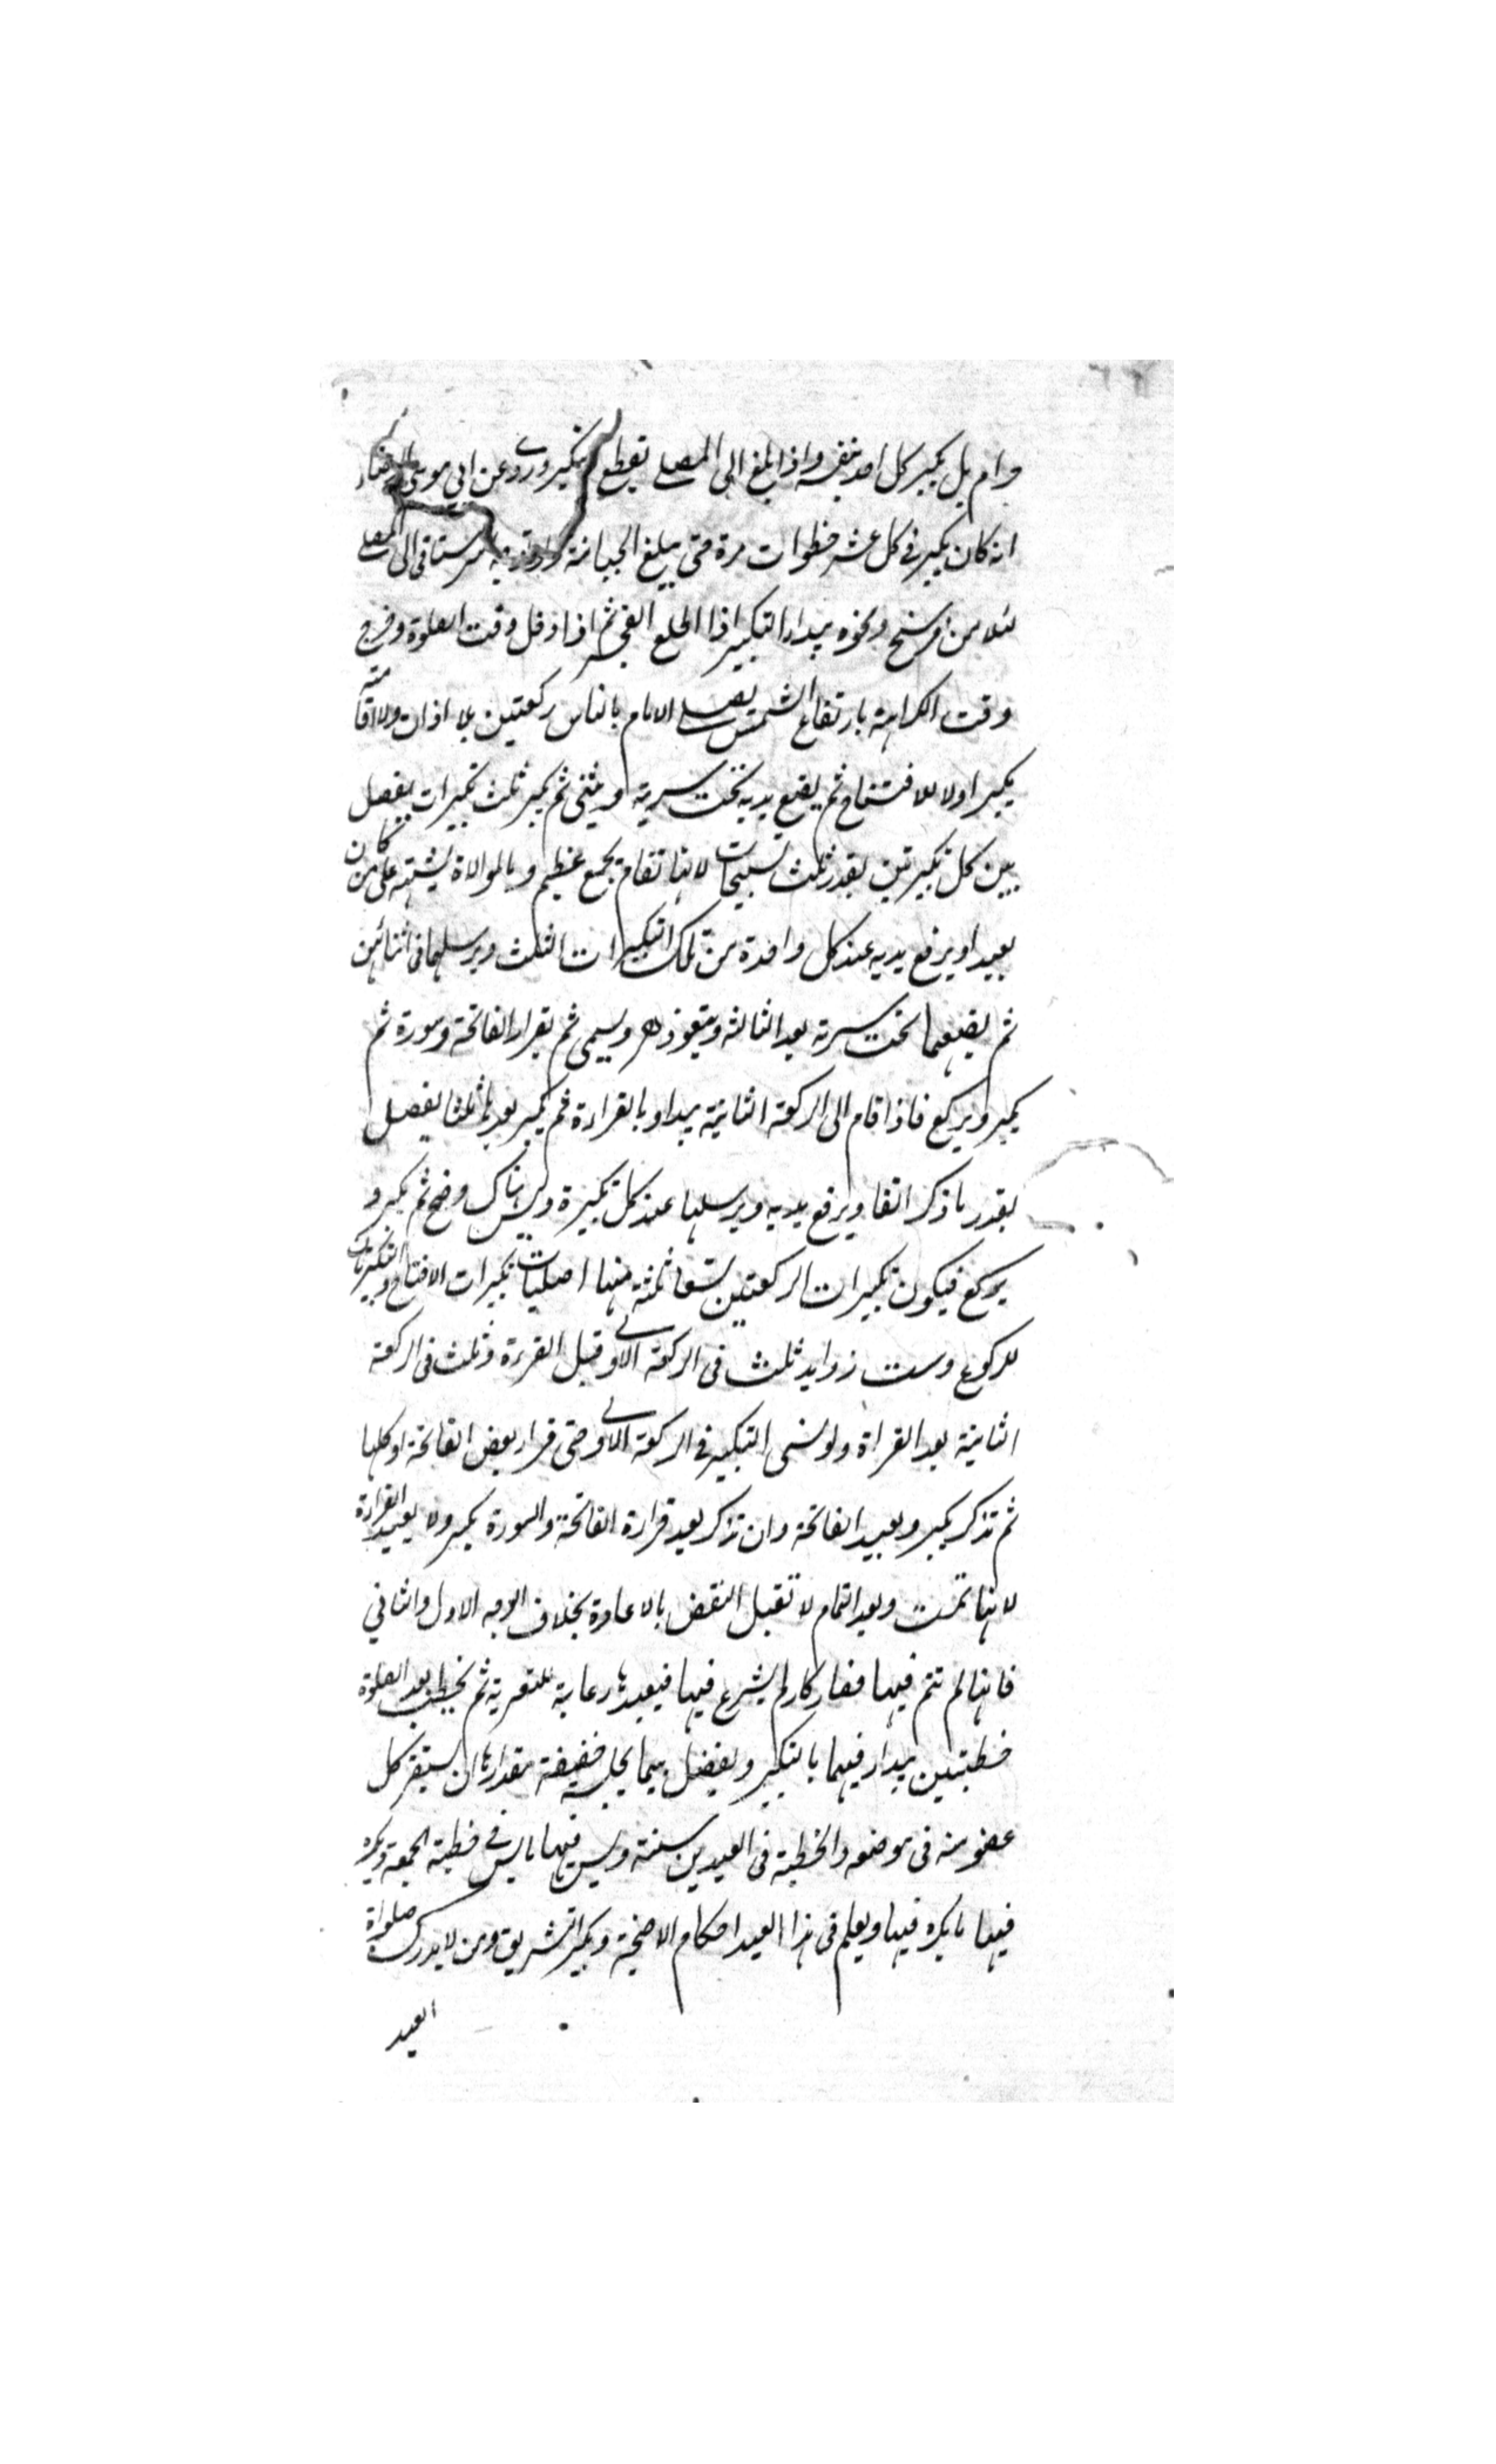 حرام بل يكبر كل احد بنفسه واذا بلغ الى المصلى تقطع التكبير وروى عن ابي موسى
انه كان يكبر في كل عشر خطوات مرة حتى يبلغ الجبانة رستاقي الى المصلى
ثلاث من فرسخ ونحوه يبداء التكبير اذا اطلع الفجر ثم اذا دخل وقت الصلوة وخرج
وقت الكراهة بارتفاع الشمس يصلى الامام بالناس ركعتين بلا اذان ولا اقامة
يكبر اولا للافتتاح ثم يضع يديه تحت سرته ويثنى ثم يكبر ثلث تكبيرات يفصل
بين كل تكبيرتين بقدر ثلث تسبيحات لانها تقام بجمع عظيم وبالموالاة يشتبه على من كان
بعيدا ويرفع يديه عند كل واحدة من تلك التكبيرات الثلث ويرسلهما في اثنائهن
ثم يضعهما تحت سرته بعد الثالثة ويتعوذ ويسمى ثم يقراء الفاتحة وسورة ثم
يكبر ويركع فاذا قام الى الركعة الثانية يبداو بالقراءة ثم يكبر بعدها ثلثا يفصل
بقدر ما ذكر انفا ويرفع يديه ويرسلها عند كل تكبيرة وليس هناك وضع ثم يكبر و
يركع فيكون تكبيرات الركعتين تسعا ثلثة منها اصليات تكبيرات الافتتاح والتكبيرتان
للركوع وست زوايد ثلث في الركعة الاولى قبل القرءة وثلث في الركعة
الثانية بعد القراة ولو نسى التكبير في الركعة الاولى حتى قراء بعض الفاتحة او كلها
ثم تذكر يكبر ويعيد الفاتحة وان تذكر بعد قراءة الفاتحة والسورة يكبر ولا يعيد القراءة
لانها تمت وبعد التمام لا تقبل النقض بالاعادة بخلاف الوجه الاول والثاني
فانها لم تتم فيها فصار كان لم يشرع فيها فيعيدها رعاية للترتيب ثم يخطب بعد الصلوة
خطبتين يبداء فيهما بالتكبير ويفصل بينهما بجلسة خفيفة مقدارها ان يستقر كل
عضو منه في موضعه والخطبة في العيدين سنة وليس فيها ما ليس في خطبة الجمعة ويكره
فيها ما يكره فيها ويعلم في هذا العيد احكام الاضحية وتكبير التشريق ومن لا يدرك صلوة
العيد